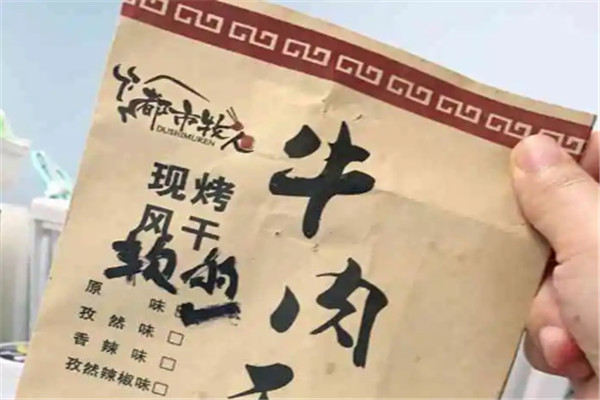 都市牧人
DUSHIMUREN
牛肉
现烤
风干
软的
原 味
孜然味□
香辣味□
孜然辣椒味□